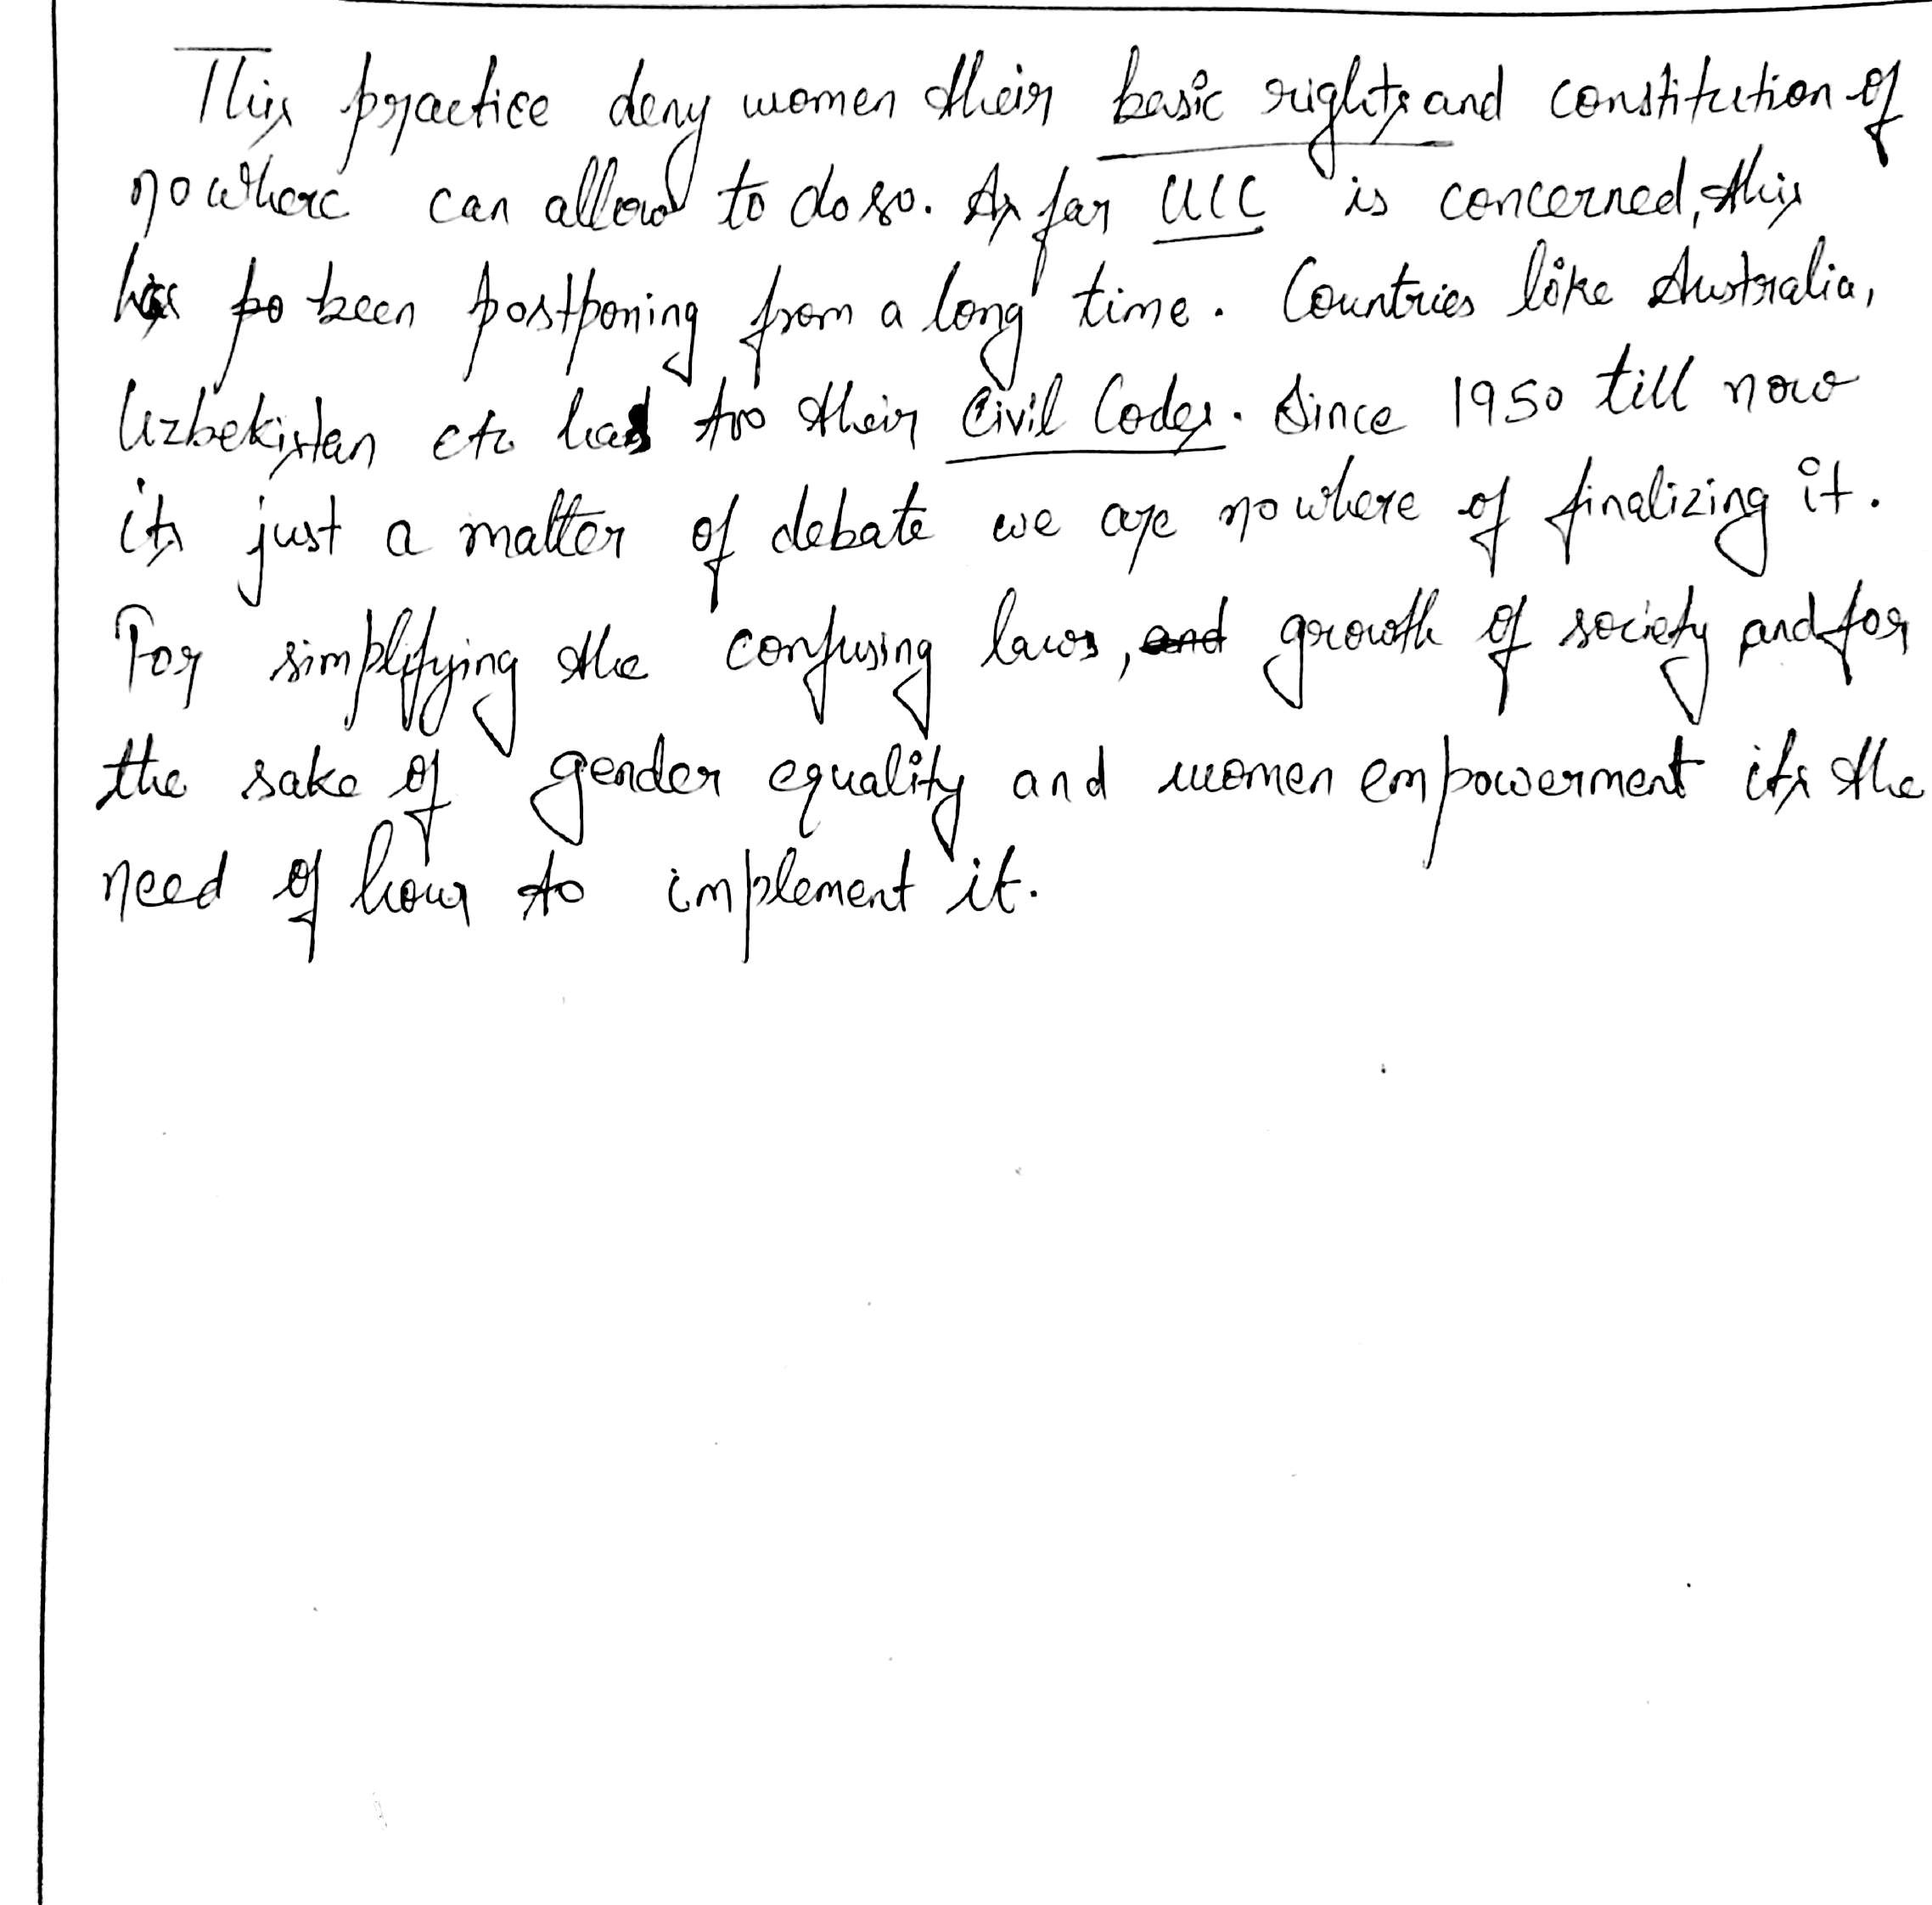 This practice deny women their basic rights and constitution of
nowhere can allow to do so. As far UCC is concerned, this
has po been postponing from a long time. Countries like Australia,
Uzbekistan etc has too their Civil Codes. Since 1950 till now
its just a matter of debate we are nowhere of finalizing it.
For simplifying the confusing laws, and growth of society and for
the sake of gender equality and women empowerment its the
need of hour to implement it.